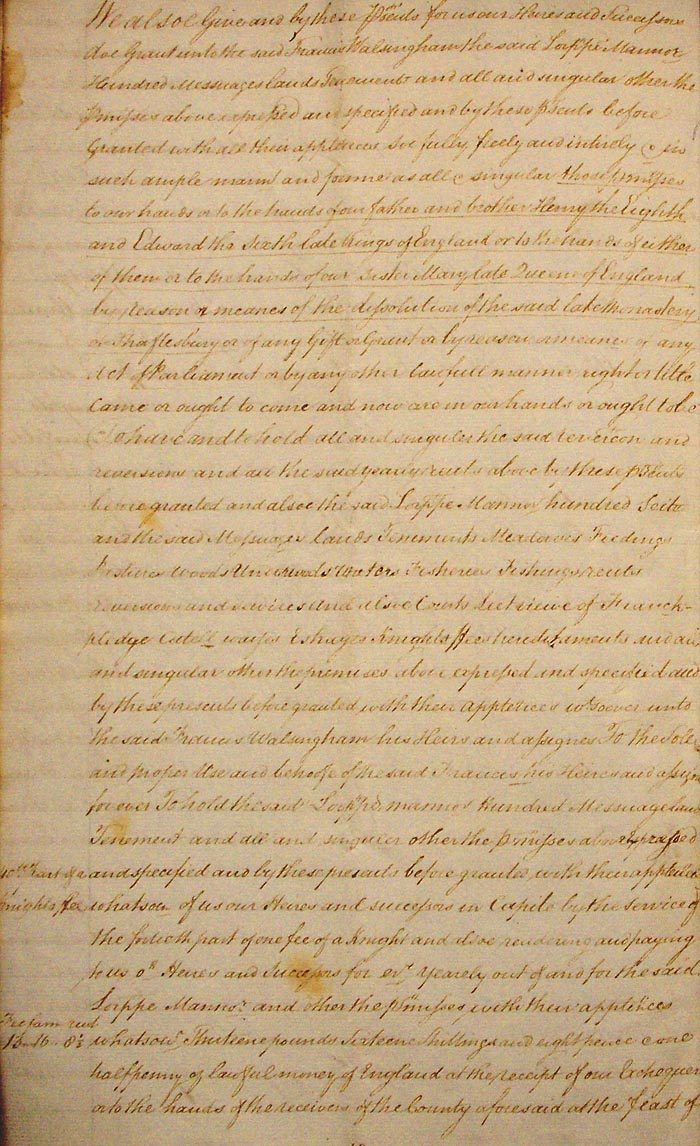 We alsoe Give and by these p̃sents for us our Heires and Successors
doe Grant unto the said Francis Walsingham the said Lorppe Mannor
Hundred Messuages lands Tenements and all and singular other the
p̃misses above expressed and specified and by these p̃sents before
Granted with all their apptences soe fully freely and intirely & in
such ample mann̄ and forme as all & singular those p̃misses
to our hands or to the hands of our father and brother Henry the Eighth
and Edward the Sixth late Kings of England or to the hands of either
of them or to the hands of our Sister Mary late Queene of England
by reason or meanes of the dissolution of the said late Monastery
of Shaftesbury or of any Gift or Grant or by reason or meanes of any
Act of Parliament or by any other lawfull manner right or title
came or ought to come and now are in our hands or ought to be
To have and to hold all and singuler the said revercon and
reversions and all the said yearly rents above by these p̃sents
before granted and alsoe the said Lorppe Mannor hundred Scite
and the said Messuages lands Tenements Meadowes Feedings
Pastures Woods Underwoods Waters Fisheries Fishings rents
reversions and services And alsoe Courts Leet viewe of Franck-
pledge waifes Estrayes Knights ffees hereditaments and all
and singular other the premises above expressed and specified and
by these presents before granted with their apptences w̃soever unto
the said Francis Walsingham his Heirs and assignes To the Sole
and proper Use and behoofe of the said Frances his Heires and assignes
for ever To hold the said Lorppe mannor Hundred Messuages lands
Tenement and all and singuler other the p̃misses above expressed
40th Part of a and specified and by these presents before granted with their apptences
knights fee whatsoṽ of us our Heires and successors in Capite by the service of
the fortieth part of one fee of a Knight and alsoe rendering and paying
to us oʳ Heires and Successors for evʳ Yearely out of and for the said
Lorppe Mannoʳ and other the p̃misses with their apptences
Fee farm rent
13 - 16 - 8½ whatsoṽ Thirteene pounds Sixteene Shillings and eight pence one
halfpenny of lawful money of England at the receipt of our Exchequer
or to the hands of the receivers of the County aforesaid at the feast of